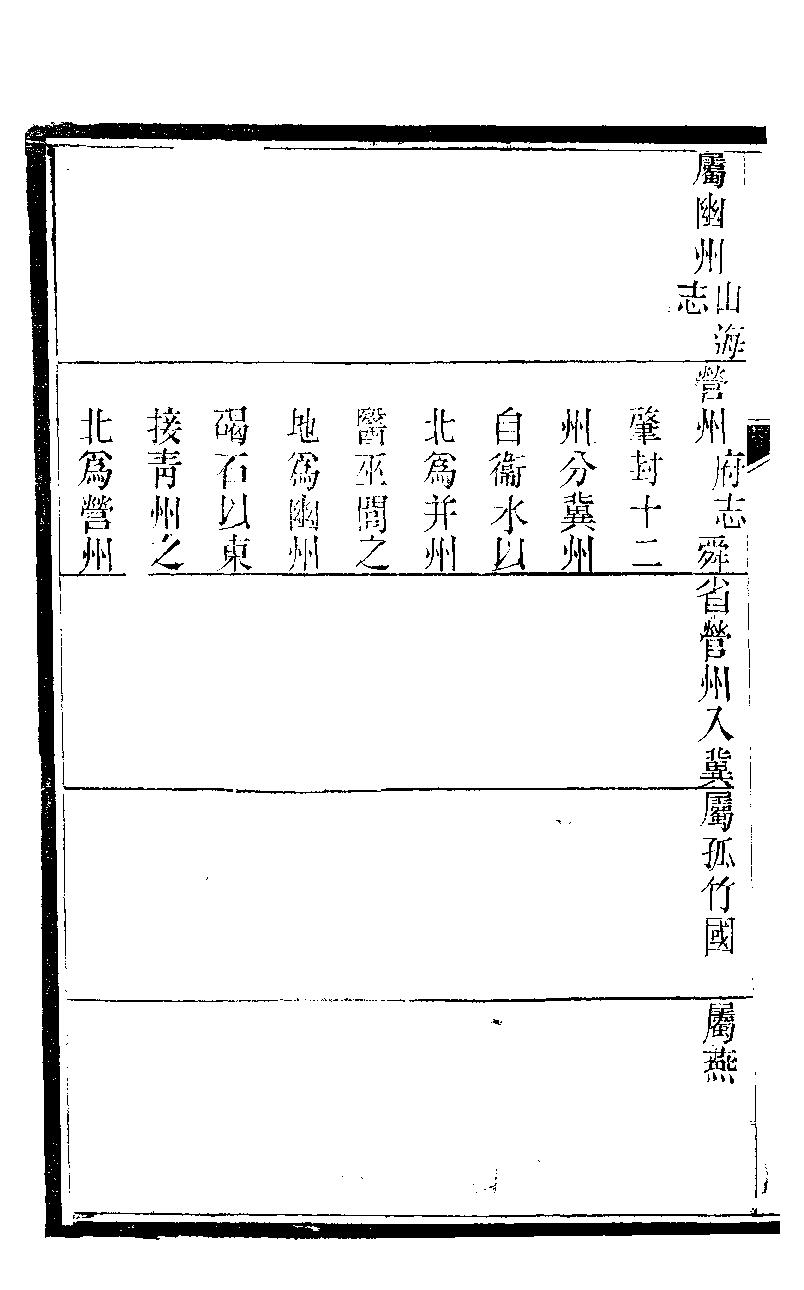 屬幽州山海志
營州府志舜
肇封十二
州分冀州
自衞水以
北爲并州
醫巫閭之
地爲幽州
碣石以東
接靑州之
北爲營州
省營州入冀
屬孤竹國
屬燕